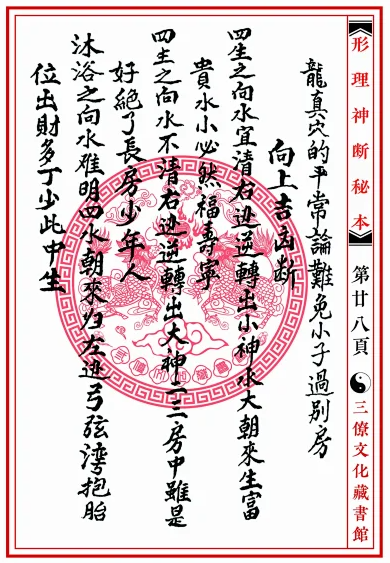 形理神断秘本
第廿八頁
三僚文化藏書館
龍真穴的平常論難免小子過别房
向上吉凶断
四生之向水宜清右边逆轉出小神水大朝來生富
貴水小必然福壽寧
四生之向水不清右边逆轉出大神二三房中雖是
好絕了長房少年人
沐浴之向水难明四水朝來归左边弓弦湾抱胎
位出財多丁少此中生